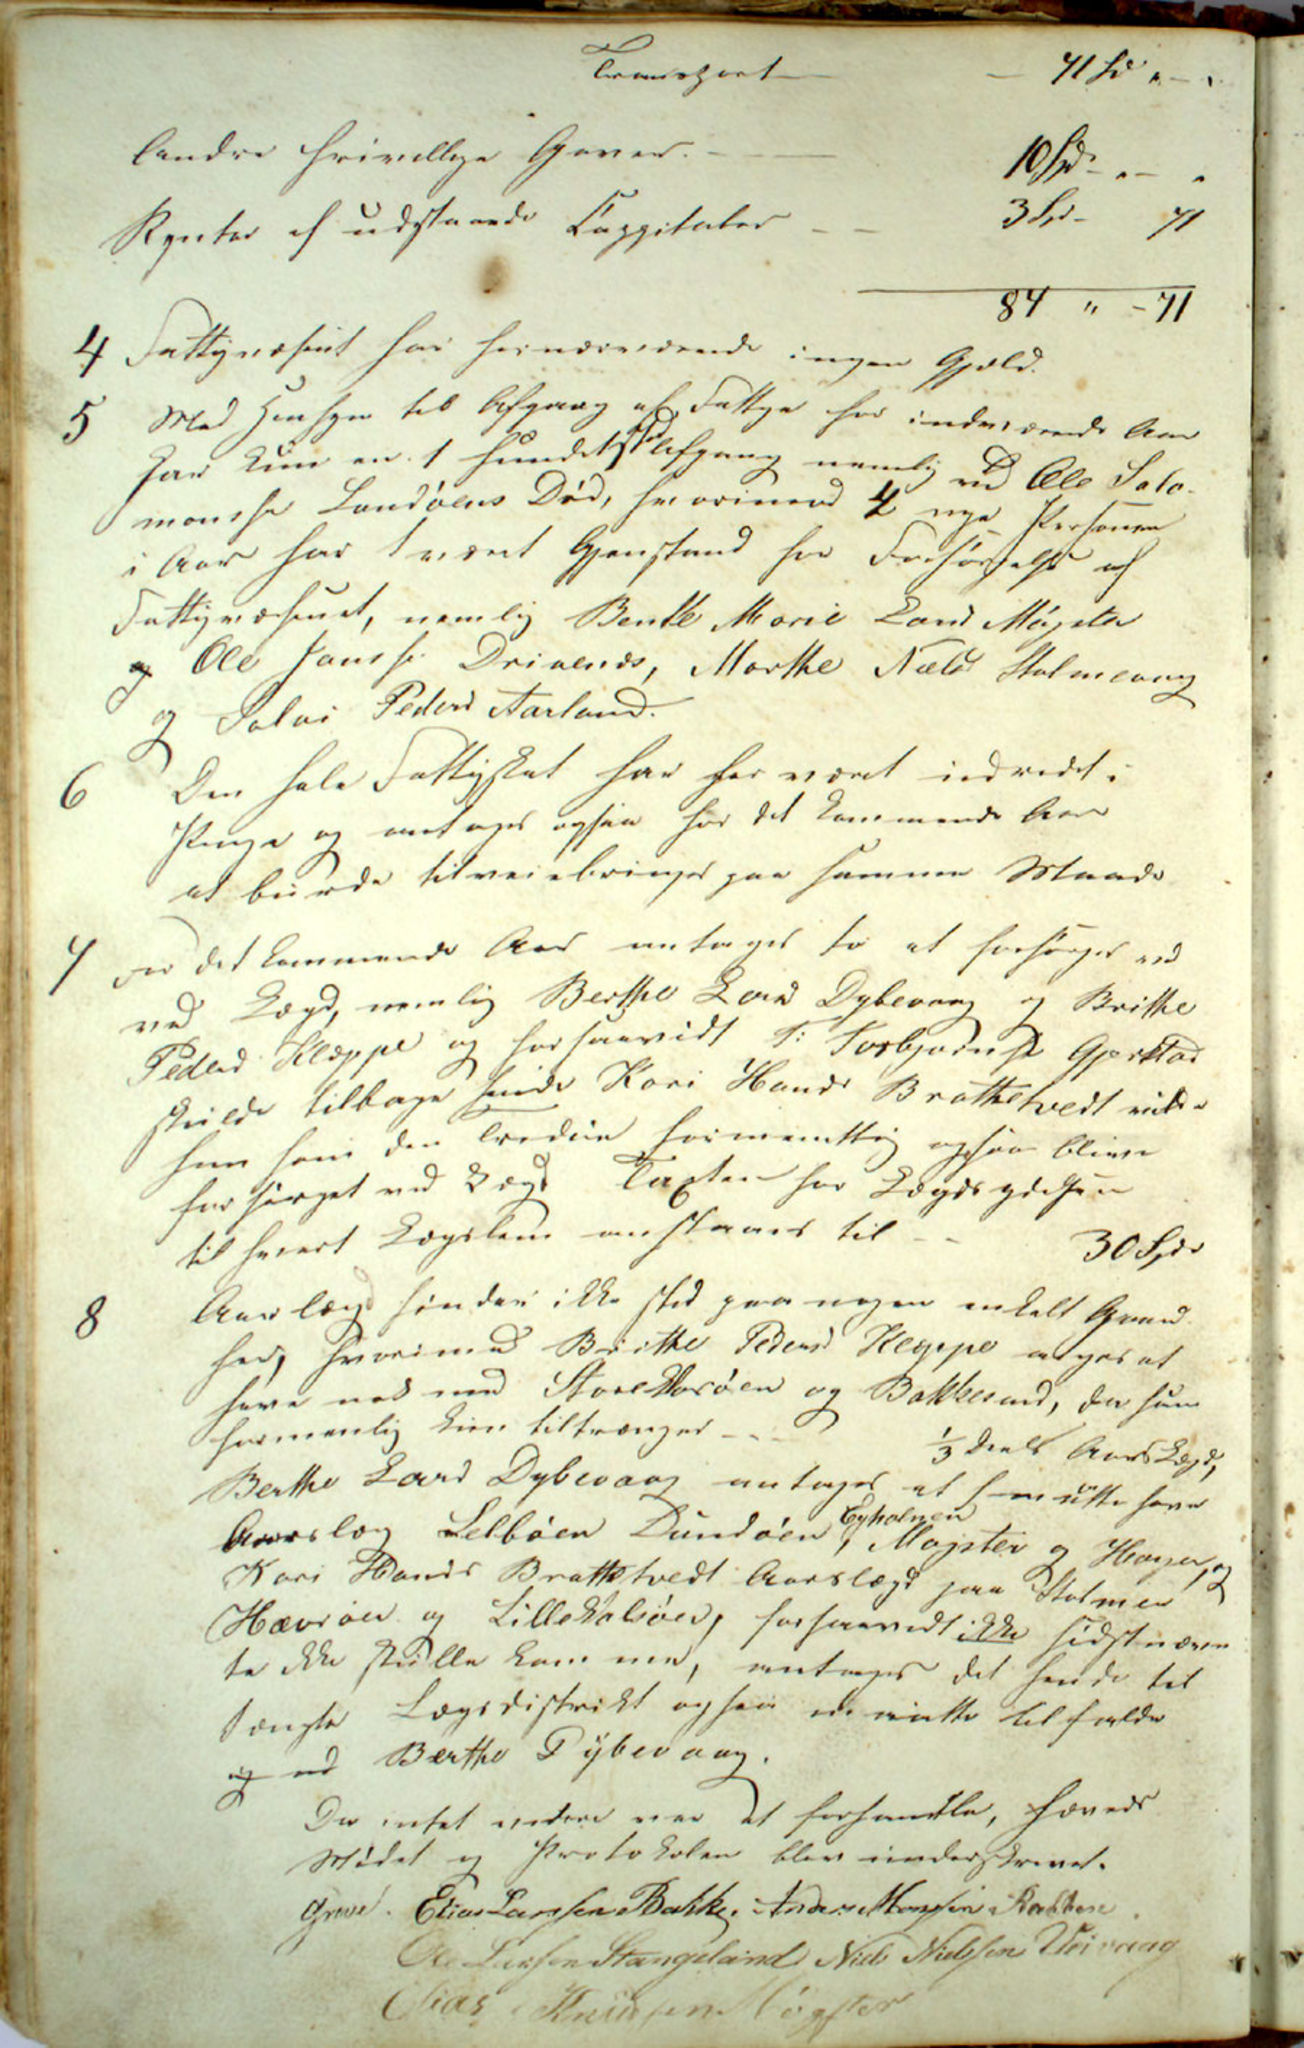 Transport — 71 Spd " - "
Andre frivillige Gaver. — 10 Spd - " - "
Renter af udstaaende Cappitaler — — 3 Spd - 71
84 " - 71
4 Fattigvæsenet har for nærværende ingen Gjæld.
5 Med Hensyn til Afgang af Fattige for indeværende Aar
har kun en 1 fundet Sted Afgang nemlig ved Ole Salo-
monsen Landøens Død, hvorimod 4 nye Personer
i Aar har været Gjenstand for Forsørgelse af
Fattigvæsenet, nemlig Benthe Marie Larsd Møgster
og Ole Jansen Drivenes, Marthe Nælsd Stolmevaag
og Salmi Pedersd Aarland.
6 Den hele Fattigskat har her været udredet i
Penge og antages ogsaa for det kommende Aar
at burde tilveiebringes paa samme Maade
7 For det kommende Aar antages to at forsørges ved
ved Lægd, nemlig Berthe Larsd Dybevaag og Brithe
Pedersd Kleppe og forsaavidt T: Torbjørnsen Gjerstad
skulde tilbagesende Kari Hansd Brattetvedt vil
hun som den Tredie formentlig ogsaa blive
forsørget ved Lægd Taxten for Lægdsydelsen
til hvert Lægdslem ansættes til — — 30 Spd
8 Aarslægd finder ikke sted paa nogen enkelt Gaard
her, hvorimod Brithe Pedersd Kleppe antages at
have nok med StoreKalsøen og Bakkesund, da hun
formentlig kun tiltrænger — — 1/3 deels Aarslægd,
Berthe Larsd Dybevaag antages at maatte have
Aarslæg Selbøen Sundøen, Eyholmen Møgster og Horgen, og
Kari Hansd Brattetvedt Aarslægd paa Stolmen
Hævrøen og LilleKalsøen, forsaavidt ikke sidstnævn
te ikke skulle komme, antages det hende til
tænkte Lægdsdistrikt ogsaa at maatte tilfalde
og ved Berthe Dybevaag.
Da intet videre var at forhandle, hævedes
Mødet og Protokolen blev underskrevet.
Greve. Elias Larssen Bakke. Anders Monssen Rabben.
Ole Larssen Stangeland Niels Nielssen Veivaag
Elias Knudsen Møgster